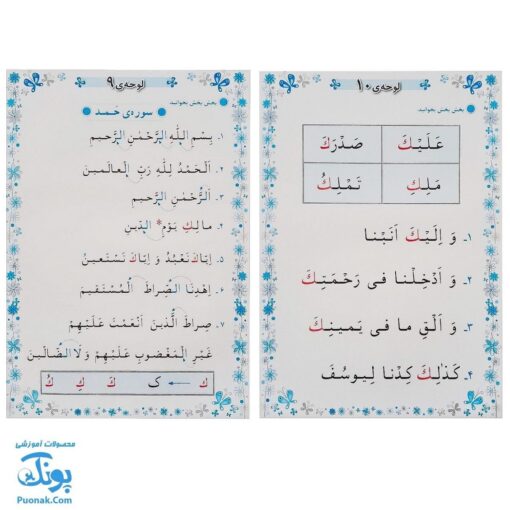 لوحه‌ی ۱۰
بخش بخش بخوانید.
عَلَيْكَ صَدْرَكَ
مَلِكِ تَمْلِكُ
۱ـ وَ اِلَيْكَ اَنَبْنا
۲ـ وَ اَدْخِلْنا فی رَحْمَتِكَ
۳ـ وَ اَلْقِ ما فی يَمينِكَ
۴ـ كَذٰلِكَ كِدْنا لِيوسُفَ
لوحه‌ی ۹
بخش بخش بخوانید.
سوره‌ی حَـمـد
۱ـ بِسْمِ اللّٰهِ الرَّحْمٰنِ الرَّحيمِ
۲ـ اَلْحَمْدُ لِلّٰهِ رَبِّ الْعالَمينَ
۳ـ اَلرَّحْمٰنِ الرَّحيمِ
۴ـ مالِكِ يَوْمِ * الدّينِ
۵ـ اِيّاكَ نَعْبُدُ وَ اِيّاكَ نَسْتَعينُ
۶ـ اِهْدِنَا الصِّراطَ الْمُسْتَقيمَ
۷ـ صِراطَ الَّذينَ اَنْعَمْتَ عَلَيْهِمْ
غَيْرِ الْمَغْضوبِ عَلَيْهِمْ وَ لَا الضّالّينَ
كـ ← ک كَ كِ كُ
محصولات آموزشی
پونک
Puonak.Com